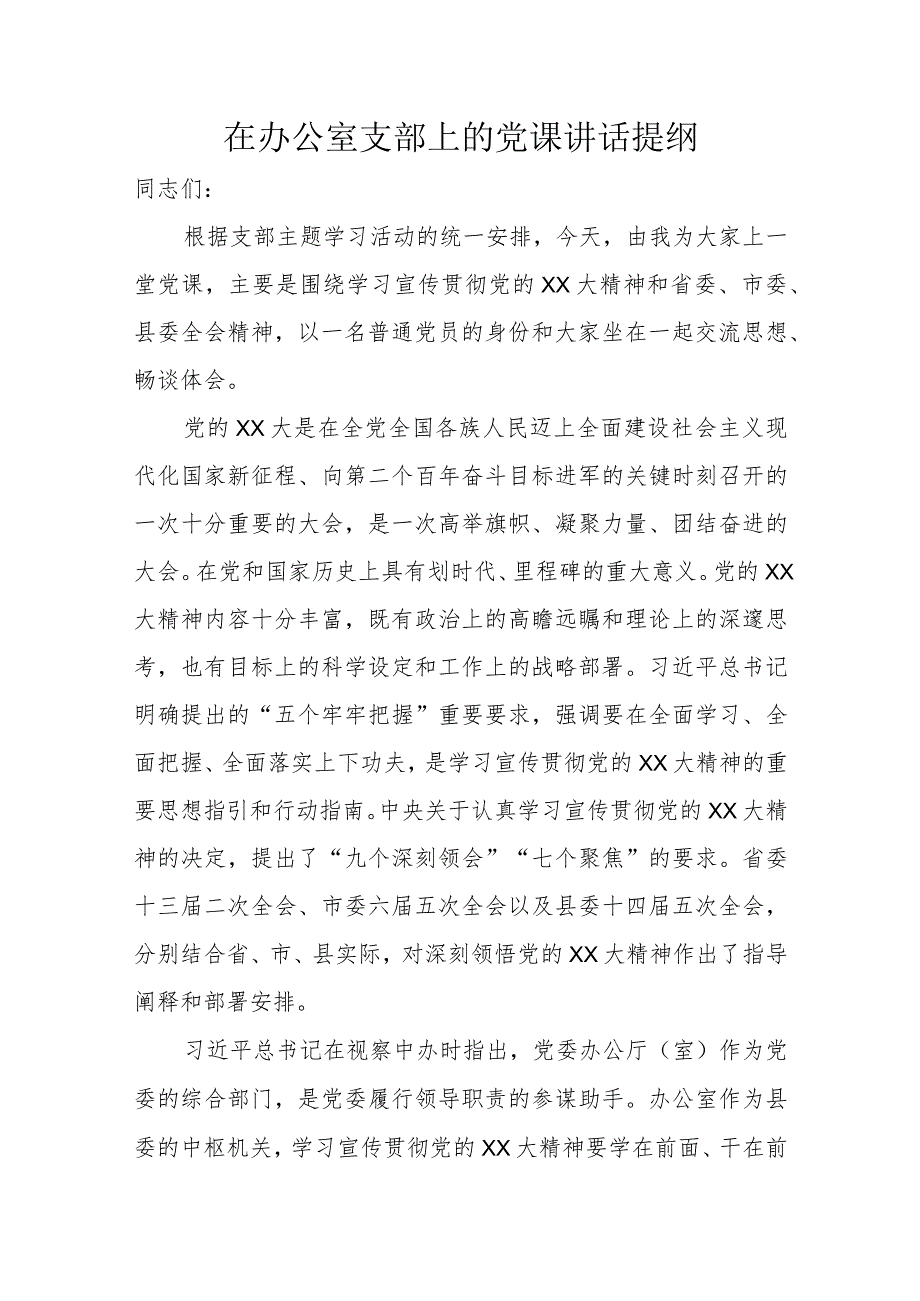 在办公室支部上的党课讲话提纲
同志们：
根据支部主题学习活动的统一安排，今天，由我为大家上一
堂党课，主要是围绕学习宣传贯彻党的 XX 大精神和省委、市委、
县委全会精神，以一名普通党员的身份和大家坐在一起交流思想、
畅谈体会。
党的 XX 大是在全党全国各族人民迈上全面建设社会主义现
代化国家新征程、向第二个百年奋斗目标进军的关键时刻召开的
一次十分重要的大会，是一次高举旗帜、凝聚力量、团结奋进的
大会。在党和国家历史上具有划时代、里程碑的重大意义。党的 XX
大精神内容十分丰富，既有政治上的高瞻远瞩和理论上的深邃思
考，也有目标上的科学设定和工作上的战略部署。习近平总书记
明确提出的“五个牢牢把握”重要要求，强调要在全面学习、全
面把握、全面落实上下功夫，是学习宣传贯彻党的 XX 大精神的重
要思想指引和行动指南。中央关于认真学习宣传贯彻党的 XX 大精
神的决定，提出了“九个深刻领会”“七个聚焦”的要求。省委
十三届二次全会、市委六届五次全会以及县委十四届五次全会，
分别结合省、市、县实际，对深刻领悟党的 XX 大精神作出了指导
阐释和部署安排。
习近平总书记在视察中办时指出，党委办公厅（室）作为党
委的综合部门，是党委履行领导职责的参谋助手。办公室作为县
委的中枢机关，学习宣传贯彻党的 XX 大精神要学在前面、干在前